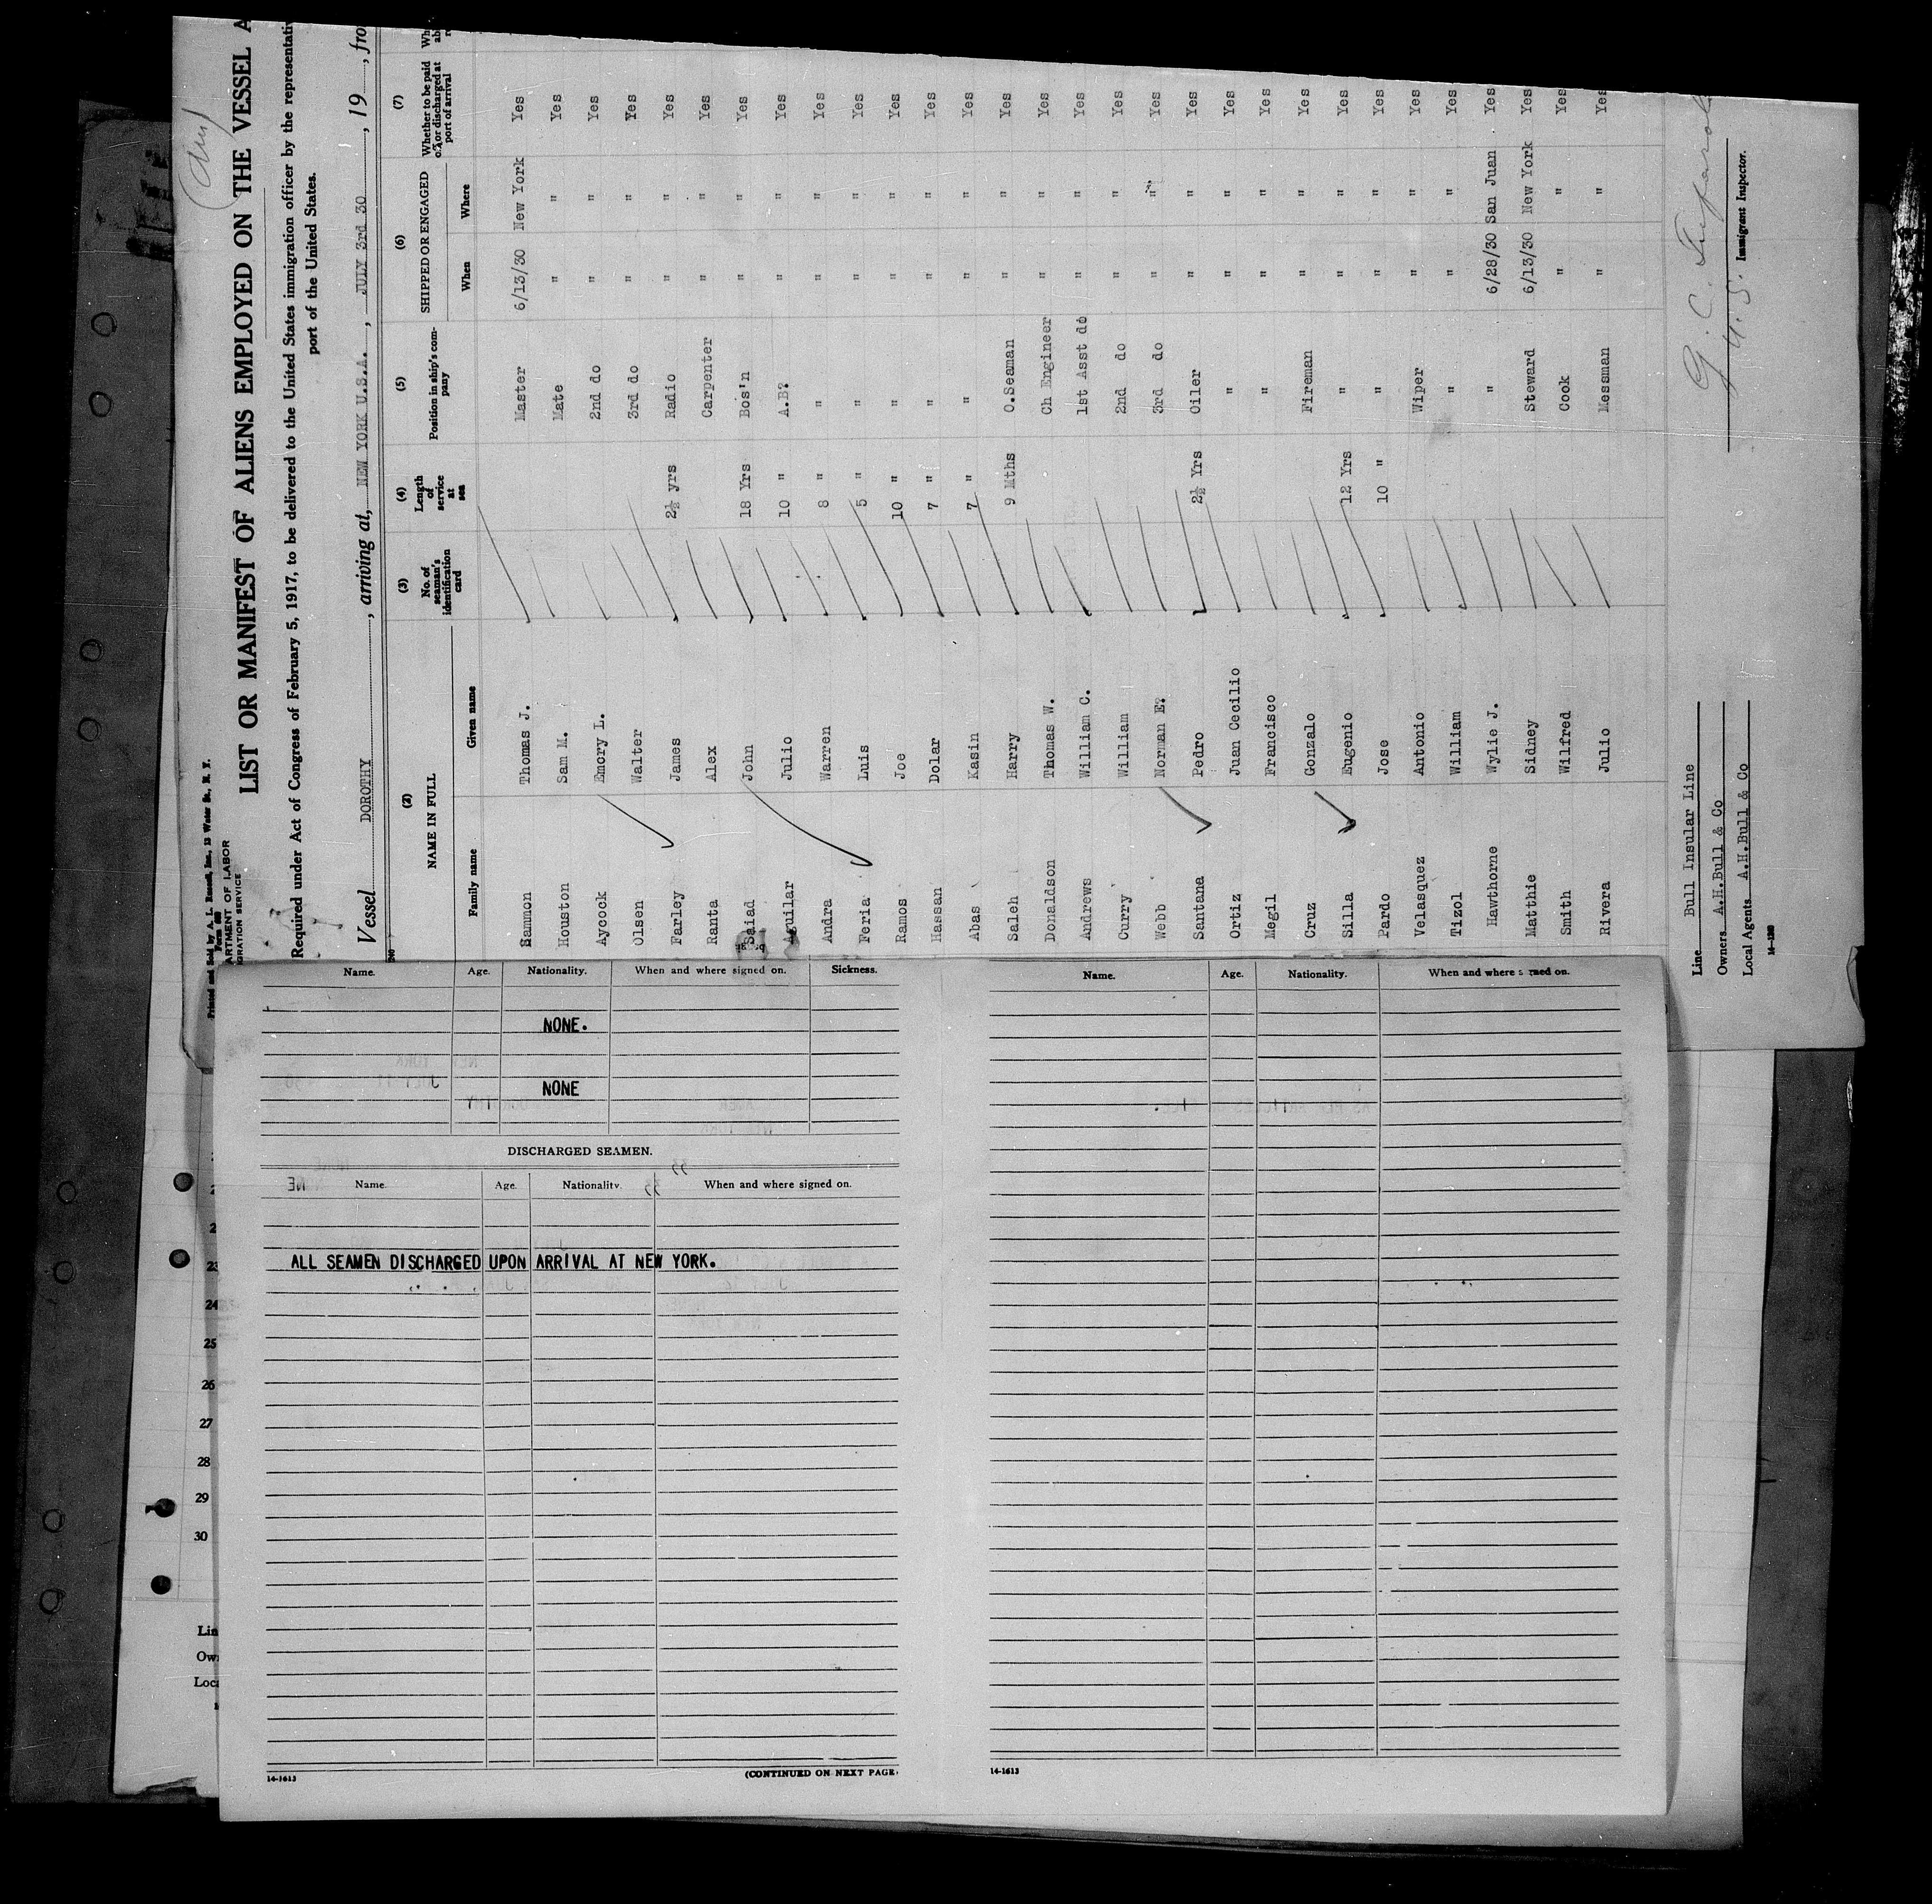 Printed and Sold by A. L. Russell, Inc., 13 Water St., N. Y.
Form 680
ARTMENT OF LABOR
IGRATION SERVICE
LIST OR MANIFEST OF ALIENS EMPLOYED ON THE VESSEL A
Required under Act of Congress of February 5, 1917, to be delivered to the United States immigration officer by the representativ
port of the United States.
Vessel DOROTHY, arriving at, NEW YORK U.S.A., JULY 3rd 30, 19, fro
(2) (3) (4) (5) (6) (7)
NAME IN FULL No. of seaman's identification card Length of service at sea Position in ship's company SHIPPED OR ENGAGED Whether to be paid off or discharged at port of arrival
Family name Given name When Where
Sammon Thomas J. Master 6/13/30 New York Yes
Houston Sam M. Mate " " Yes
Aycock Emory L. 2nd do " " Yes
Olsen Walter 3rd do " " Yes
Farley James 2½ yrs Radio " " Yes
Ranta Alex Carpenter " " Yes
Saiad John 18 Yrs Bos'n " " Yes
Aguilar Julio 10 " A.B? " " Yes
Andra Warren 8 " " " " Yes
Feria Luis 5 " " " " Yes
Ramos Joe 10 " " " " Yes
Hassan Dolar 7 " " " " Yes
Abas Kasin 7 " " " " Yes
Saleh Harry 9 Mths O.Seaman " " Yes
Donaldson Thomas W. Ch Engineer " " Yes
Andrews William C. 1st Asst do " " Yes
Curry William 2nd do " " Yes
Webb Norman E? 3rd do " " Yes
Santana Pedro 2½ Yrs Oiler " " Yes
Ortiz Juan Cecilio " " " Yes
Megil Francisco " " " Yes
Cruz Gonzalo Fireman " " Yes
Silla Eugenio 12 Yrs " " " Yes
Pardo Jose 10 " " " " Yes
Velasquez Antonio Wiper " " Yes
Tizol William " " " Yes
Hawthorne Wylie J. " 6/28/30 San Juan Yes
Matthie Sidney Steward 6/13/30 New York Yes
Smith Wilfred Cook " " Yes
Rivera Julio Messman " " Yes
Line Bull Insular Line
Owners A.H.Bull & Co
Local Agents A.H.Bull & Co
14-1240
Immigrant Inspector.
Name. Age. Nationality. When and where signed on. Sickness.
NONE.
NONE
DISCHARGED SEAMEN.
Name. Age. Nationality. When and where signed on.
ALL SEAMEN DISCHARGED UPON ARRIVAL AT NEW YORK.
14-1613
(CONTINUED ON NEXT PAGE
Name. Age. Nationality. When and where signed on.
14-1613
23
24
25
26
27
28
29
30
Lin
Own
Loca